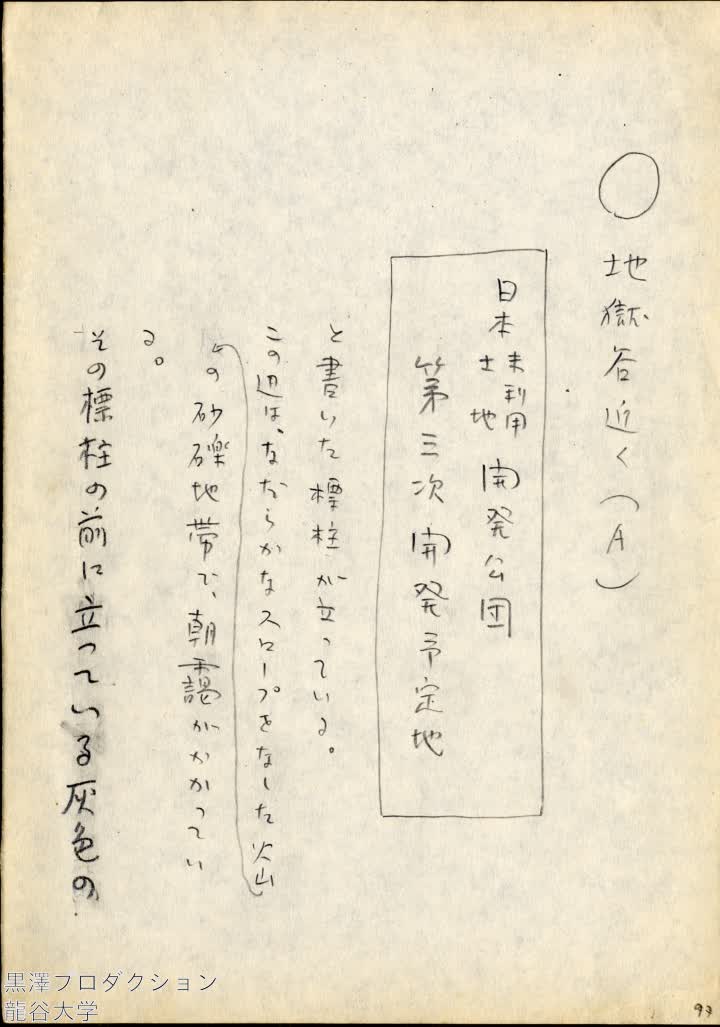 ○ 地獄谷近く(A)
日本未利用土地開発公団
第三次開発予定地
と書いた標柱が立っている。
この辺は、なだらかなスロープをなした火山
の砂礫地帯で、朝靄がかかってい
る。
その標柱の前に立っている灰色の
黒澤プロダクション
龍谷大学